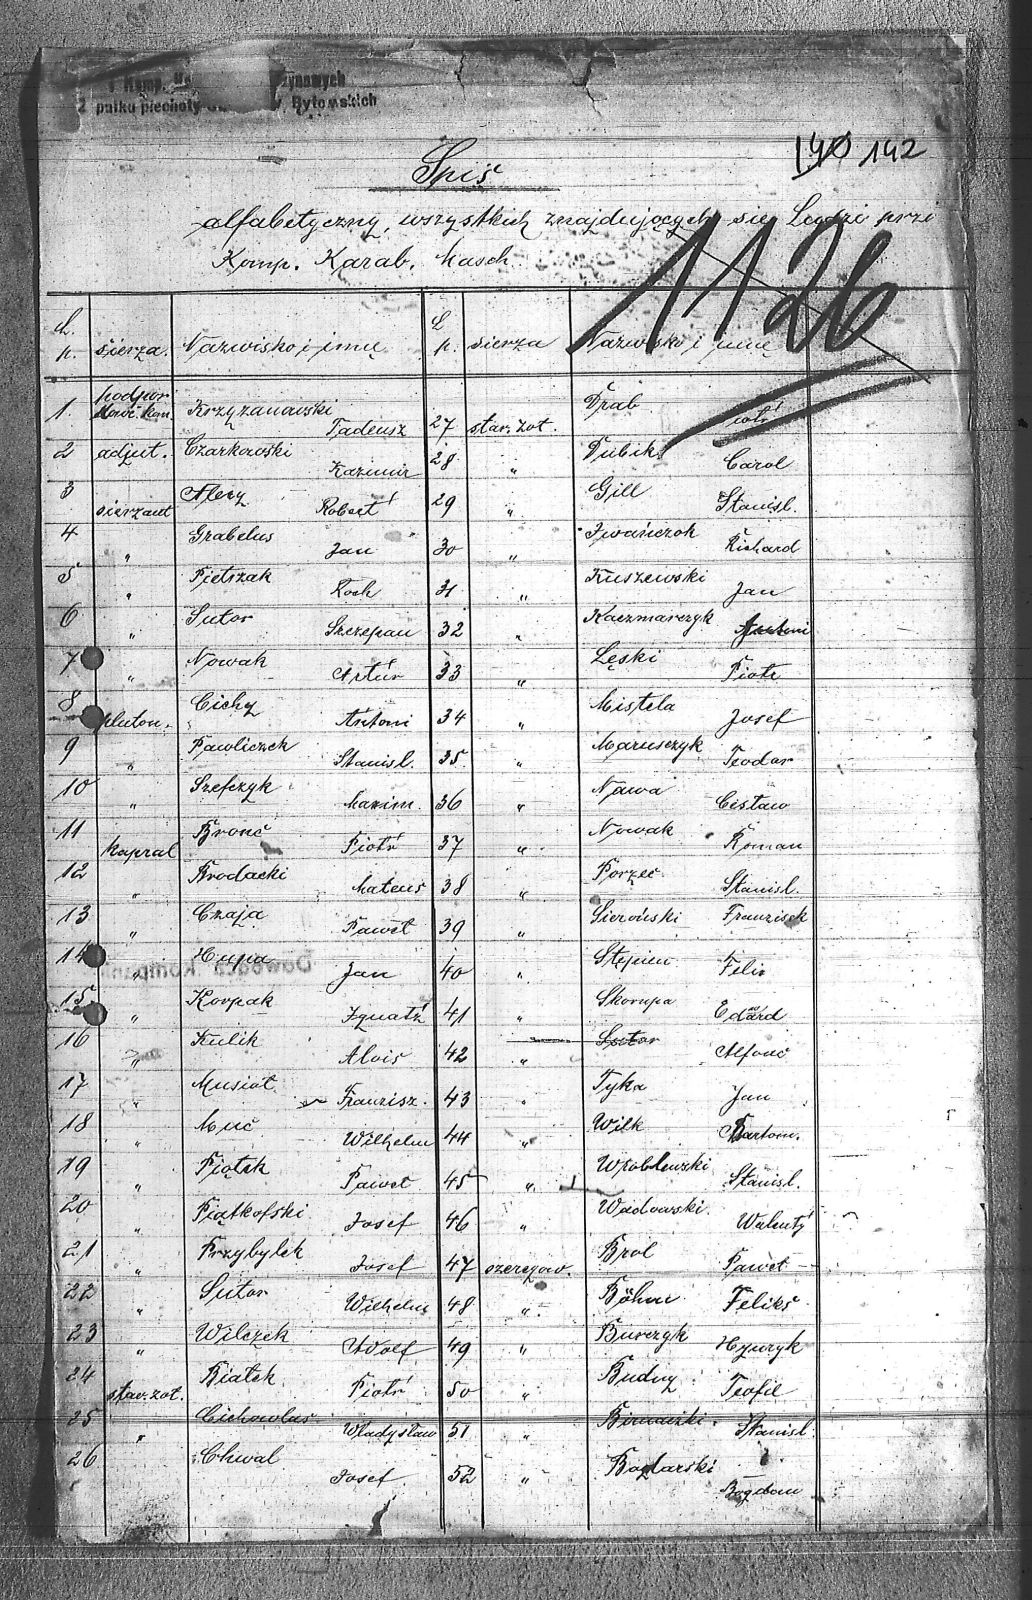 1 Komp. Ka
2 pułku piechoty Bytomskich
140 142
Spis
alfabetyczny, wszystkich znajdujących się Ludzi przi
Komp. Karab. Masch.
1126
L. p. sierża. Nazwisko i imię L. p. sierża Nazwisko i imię
1. podpor. Krzyzanowski Tadeusz 27 star. żot. Drab Piotr
2 adjut. Czarkowski Kazimir 28 " Dubik Carol
3 sierzant Robert 29 " Gill Stanisl.
4 " Grabelus Jan 30 " Iwańczok Richard
5 " Pietszak Roch 31 " Kuszewski Jan
6 " Sutor Szczepan 32 " Kaczmarczyk Antoni
7 " Nowak Artúr 33 Łęski Piotr
8 pluton. Cichy Antoni 34 " Mistela Josef
9 " Pawliczek Stanisl. 35 " Marusczyk Teodor
10 " Szefczyk Maxim. 36 " Nawa Cisław
11 kapral Bronč Piotr 37 " Nowak Roman
12 " Brodacki Mateus 38 " Porzec Stanisl.
13 " Czaja Paweł 39 " Sieroński Franzisek
14 " Hupa Jan 40 " Stepien Felix
15 " Korpak Ignatz 41 " Skorupa Eduard
16 " Kulik Alois 42 " Sutor Alfonč
17 " Musioł Franzisz. 43 " Tyka Jan
18 " Muč Wilhelm 44 " Wilk Bartom.
19 " Piątek Paweł 45 " Wroblewski Stanisl.
20 " Piątkofski Josef 46 " Wadowski Walenty
21 " Przybylek Josef 47 szeregow. Brol Paweł
22 " Sutor Wilhelm 48 " Böhm Feliks
23 " Wilczek Adolf 49 " Burczyk Hynryk
24 star. żot. Białek Piotr 50 " Budny Teofil
25 " Cichowlas Wladysław 51 " Stanisl.
26 Chwal Josef 52 " Bogdan
Dowódca Kompanii